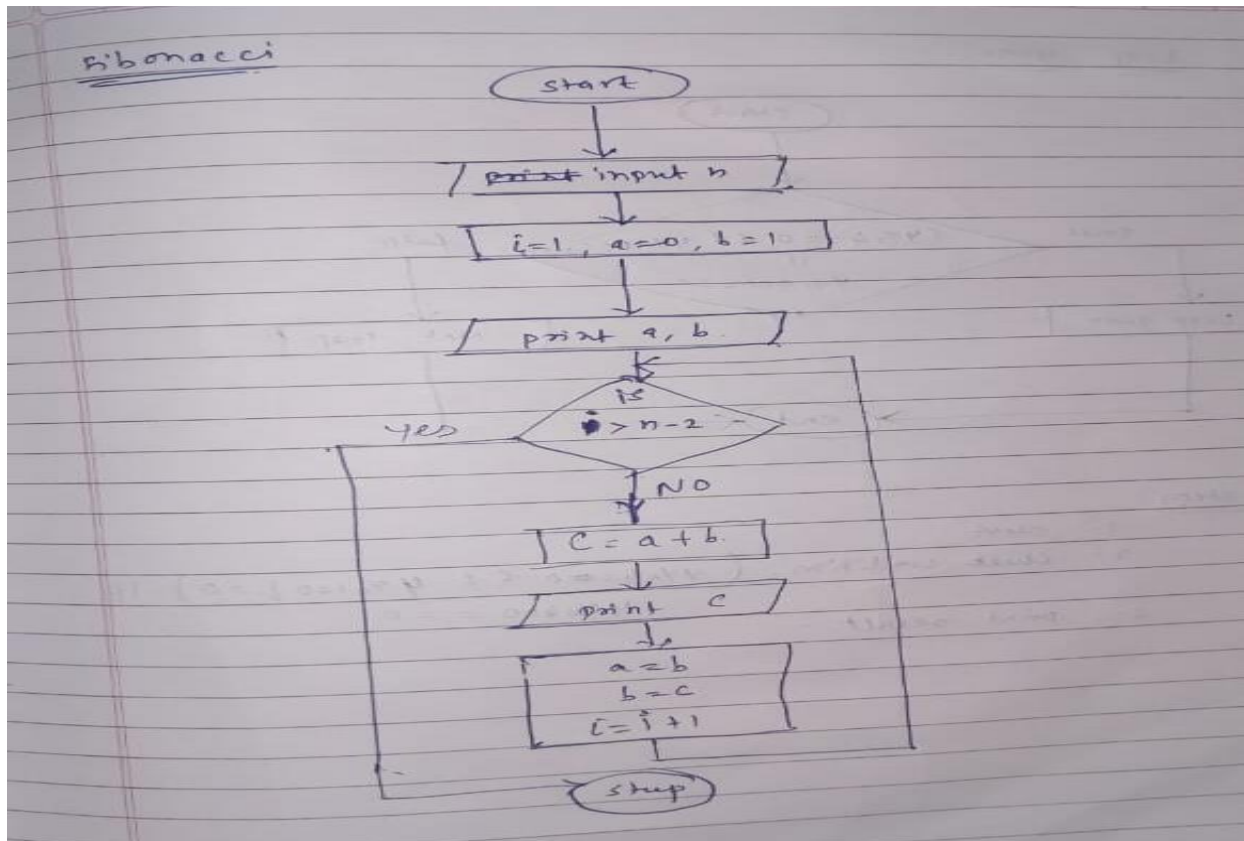 Fibonacci
start
print input n
i=1, a=0, b=1
print a, b.
is
i > n-2
yes
NO
C = a + b.
print c
a = b
b = c
i = i + 1
stop